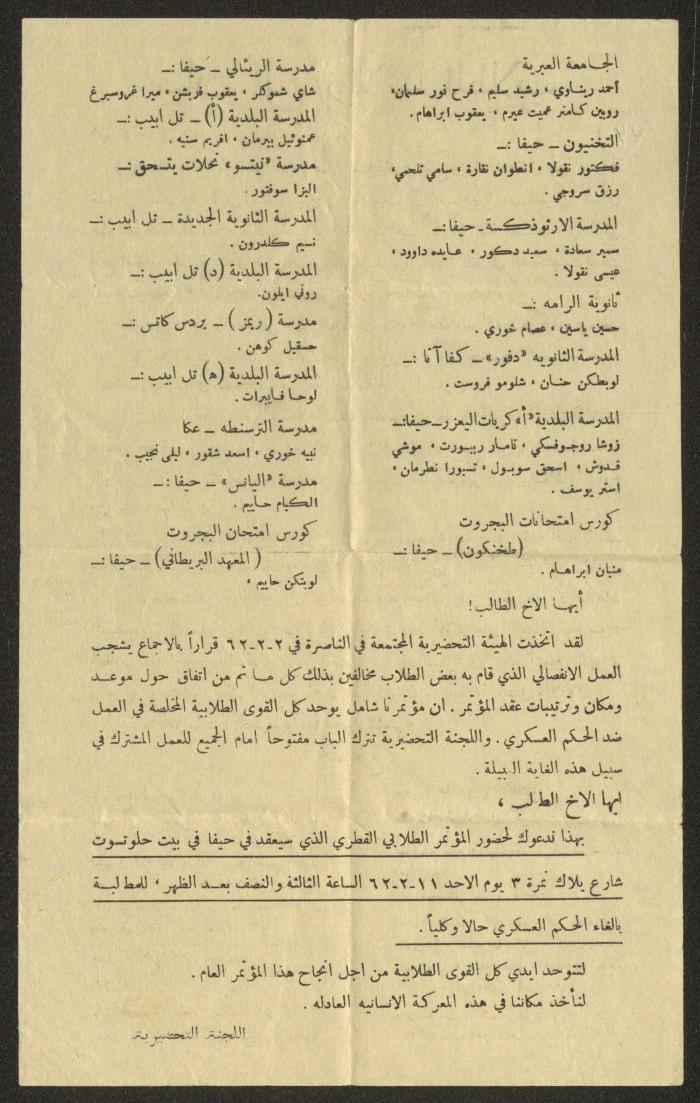 الجامعة العبرية
أحمد ريناوي، رشيد سليم، فرح نور سلمان،
روبين كامنر عميت عيرم، يعقوب ابراهام.
التخنيون ــ حيفا :ــ
فكتور نقولا، انطوان نقارة، سامي تلحمي،
رزق سروجي.
المدرسة الارثوذكسة ـ حيفا :ــ
سمير سعادة، سعيد دكور، عايده داوود،
عيسى نقولا.
ثانوية الرامه :ــ
حسين ياسين، عصام خوري.
المدرسة الثانويه «دفور» ــ كفا آتا :ــ
لوبطكن حنان، شلومو فروست.
المدرسة البلدية «أ» كريات اليعزر ــ حيفا :ــ
زوشا روجوفسكي، تامار ريبورت، موشي
قدوش، اسحق سوبول، تسبورا نطرمان،
استر يوسف.
كورس امتحانات البجروت
(طخنكون) ــ حيفا :ــ
منبان ابراهام.
مدرسة الريئالي ــ حيفا :ــ
شاي شموكلر، يعقوب فربشن، ميرا غروسبرغ
المدرسة البلدية (أ) ــ تل ابيب :ــ
عمنوئيل بيرمان، افريم سنيه.
مدرسة «نيتسو» نحلات يتسحق :ــ
اليزا سوفتور.
المدرسة الثانوية الجديدة ــ تل ابيب :ــ
نسيم كلدرون.
المدرسة البلدية (د) تل ابيب :ــ
روني ايلون.
مدرسة (ريمز) ــ بردس كاتس :ــ
حسقيل كوهن.
المدرسة البلدية (ه) تل ابيب :ــ
لوحا فايبرات.
مدرسة الترسنطه ــ عكا
نبيه خوري، اسعد شقور، ليلى نجيب.
مدرسة «اليانس» ــ حيفا :ــ
الكيام حاييم.
كورس امتحان البجروت
(المعهد البريطاني) ــ حيفا :ــ
لوبتكن حاييم،
أيها الاخ الطالب!
لقد اتخذت الهيئة التحضيرية المجتمعة في الناصرة في ٢-٢-٦٢ قراراً بالاجماع يشجب
العمل الانفصالي الذي قام به بعض الطلاب مخالفين بذلك كل ما تم من اتفاق حول موعد
ومكان وترتيبات عقد المؤتمر. ان مؤتمرنا شامل يوحد كل القوى الطلابية المخلصة في العمل
ضد الحكم العسكري. واللجنة التحضيرية تترك الباب مفتوحاً امام الجميع للعمل المشترك في
سبيل هذه الغاية النبيلة.
ايها الاخ الطالب،
بهذا ندعوك لحضور المؤتمر الطلابي القطري الذي سيعقد في حيفا في بيت حلوتسوت
شارع بلاك نمرة ٣ يوم الاحد ١١-٢-٦٢ الساعة الثالثة والنصف بعد الظهر، للمطالبة
بالغاء الحكم العسكري حالا وكلياً.
لتتوحد ايدي كل القوى الطلابية من اجل انجاح هذا المؤتمر العام.
لنأخذ مكاننا في هذه المعركة الانسانيه العادله.
اللجنة التحضيرية